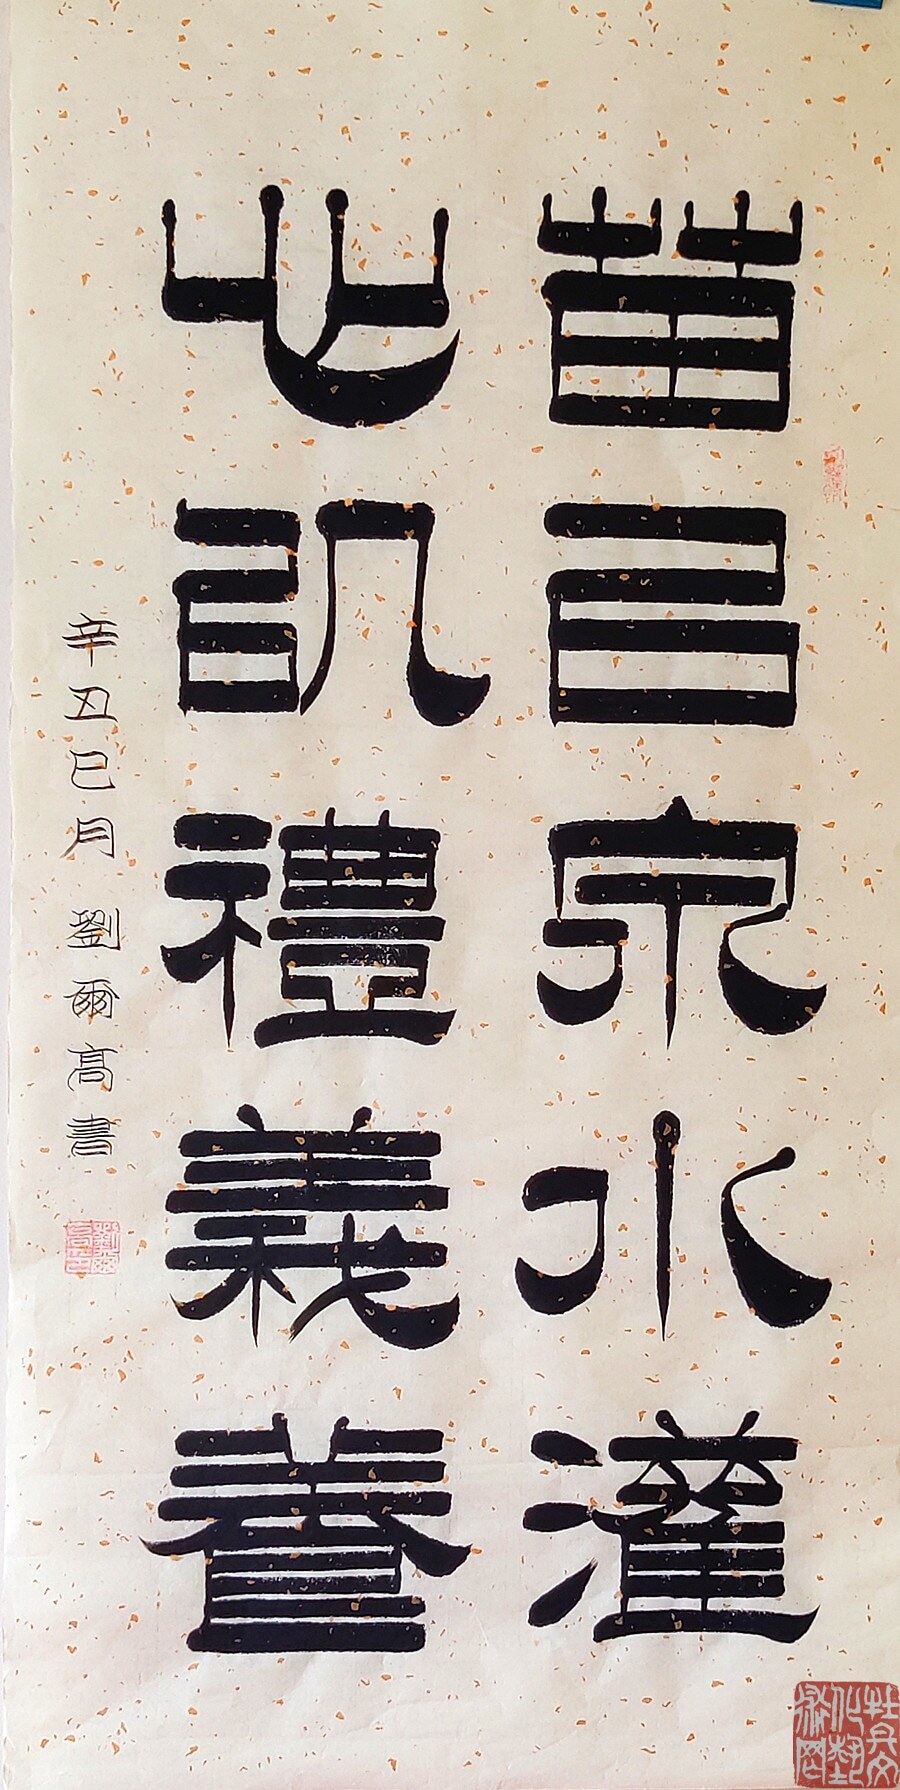 苗以泉水灌
心以禮義養
辛丑巳月 劉爾高書